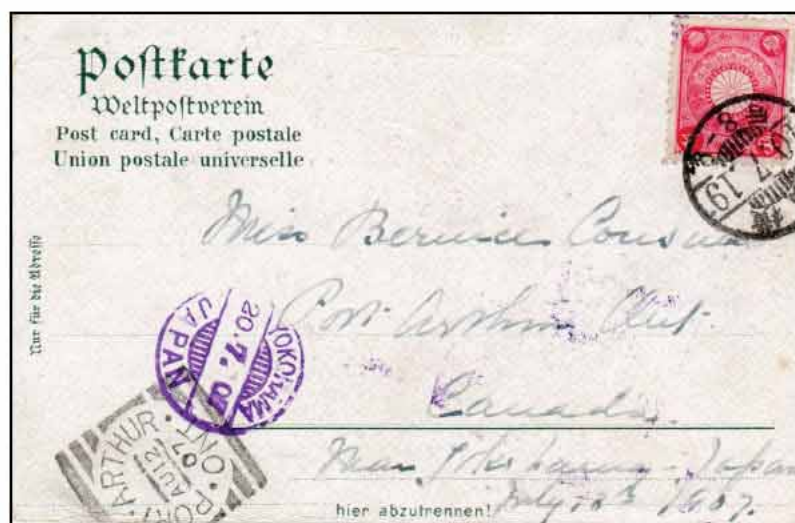 Postkarte
Weltpostverein
Post card, Carte postale
Union postale universelle
Nur für die Adresse
Miss Bernice
Port Arthur Ont.
Canada
Near Yokohama Japan
July 1907.
hier abzutrennen!
YOKOHAMA
20.7.07
JAPAN
PORT ARTHUR
AU 12
07
ONT
19